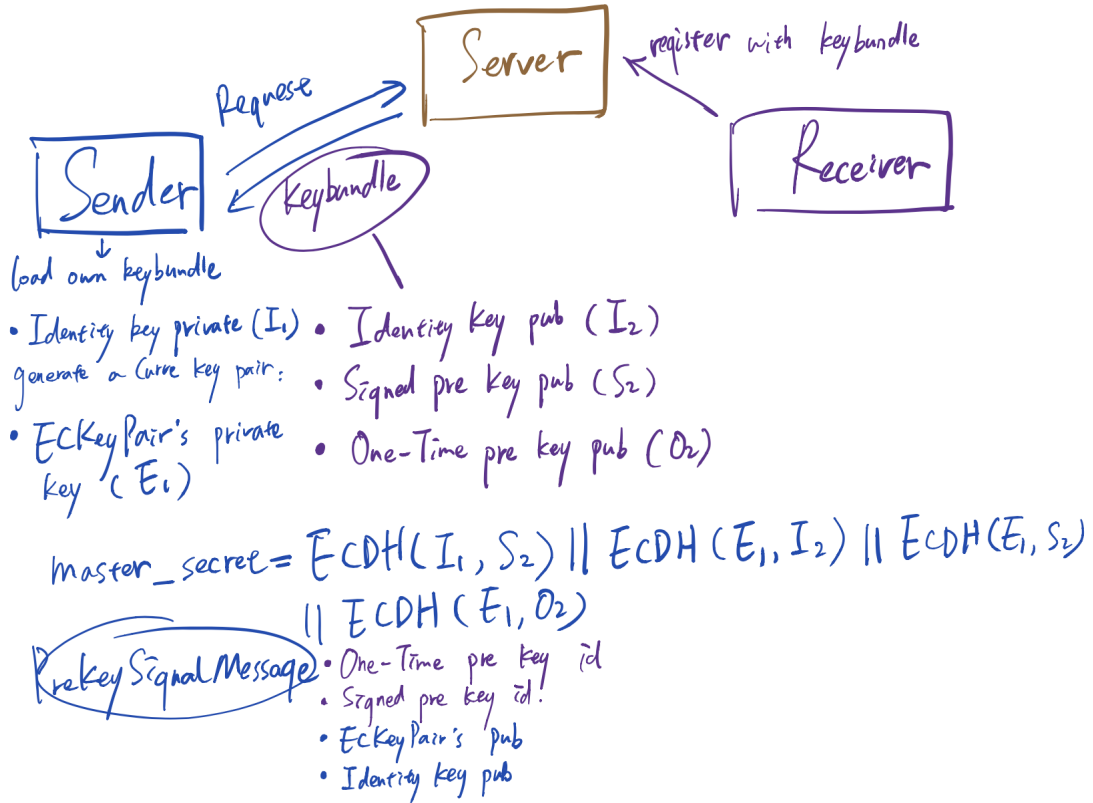 Server
register with keybundle
Request
Receiver
Sender
keybundle
load own keybundle
• Identity key private (I₁)
generate a Curve key pair:
• ECKeyPair's private
key (E₁)
• Identity key pub (I₂)
• Signed pre key pub (S₂)
• One-Time pre key pub (O₂)
master_secret = ECDH(I₁, S₂) || ECDH (E₁, I₂) || ECDH(E₁, S₂)
|| ECDH (E₁, O₂)
PreKeySignalMessage
• One-Time pre key id
• Signed pre key id.
• ECKeyPair's pub
• Identity key pub